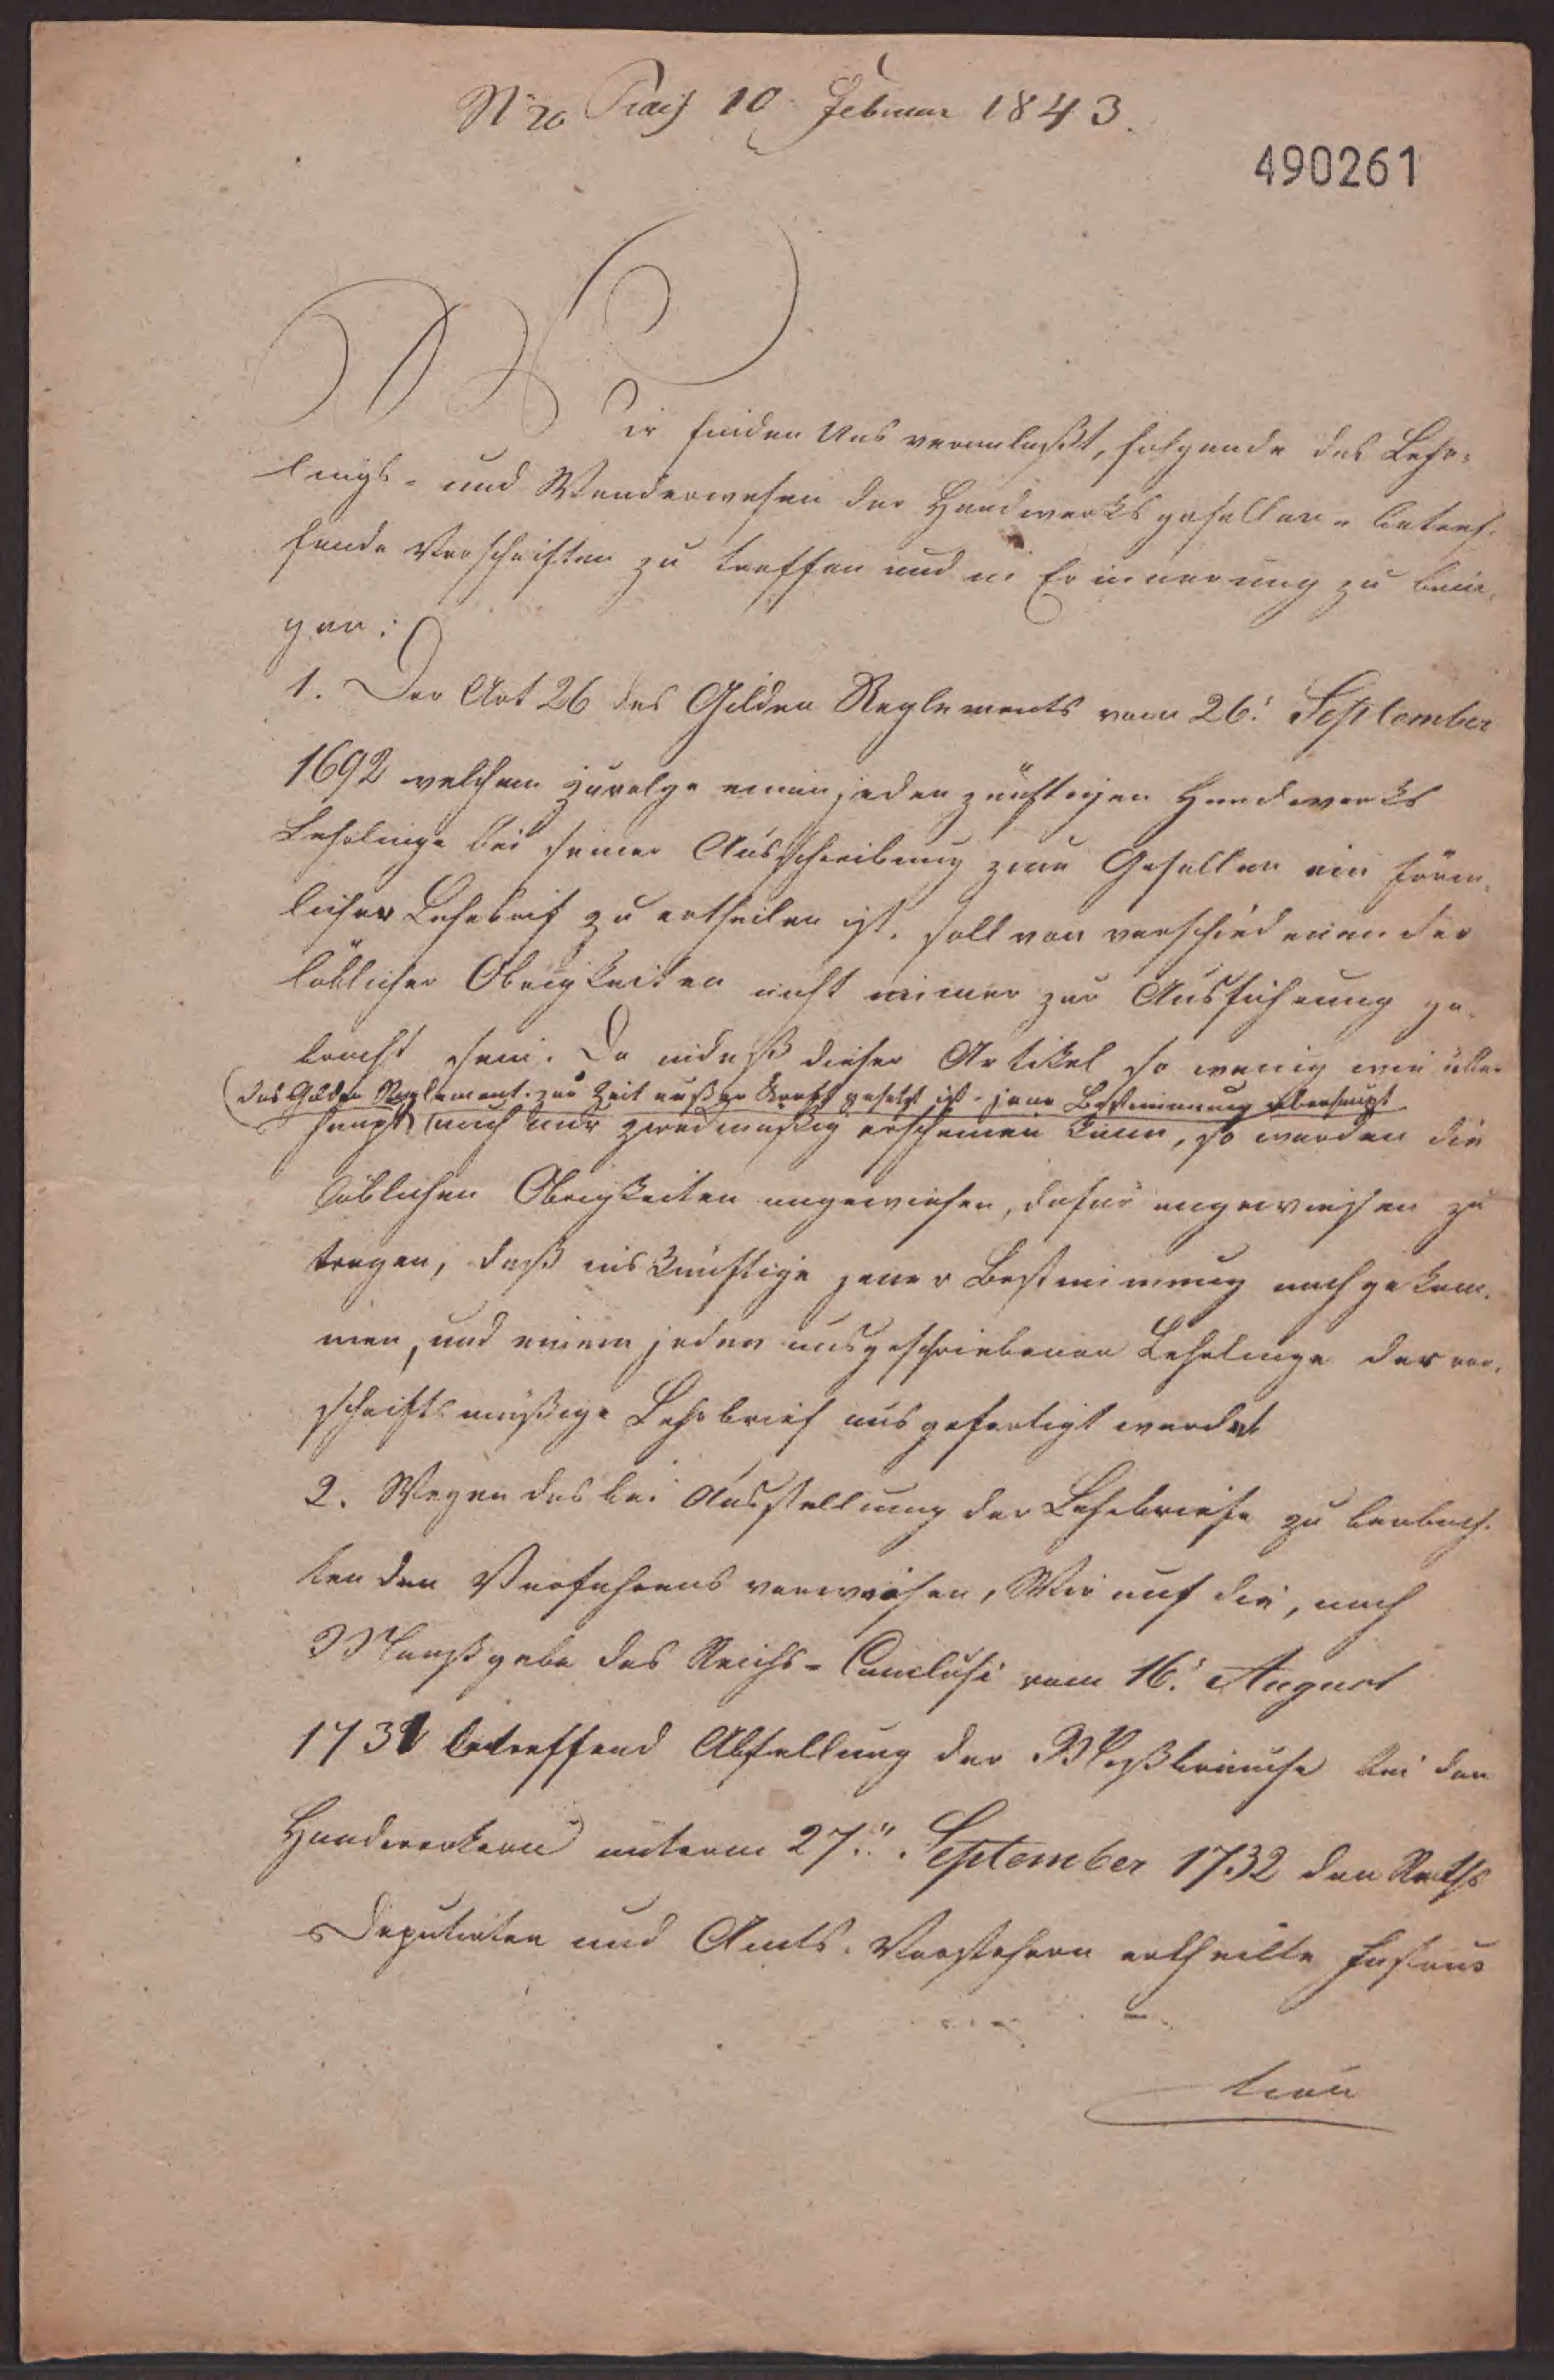 No 20 Prais 10 Februar 1843.
490261
Wir finden Uns veranlaßt, folgende das Lehr-
lings- und Wanderwesen der Handwerksgesellen - betref-
fende Vorschriften zu treffen und in Erinnerung zu brin-
gen:
1. Der Art 26 des Gilden Reglements vom 26. September
1692 welchem zuvolge einem jeden zünftigen Handwerks
Lehrlinge bei seiner Ausschreibung zum Gesellen ein förm-
licher Lehrbrief zu ertheilen ist, soll von verschiedenen der
löblichen Obrigkeiten nicht immer zur Ausführung ge-
bracht sein. Da indeß dieser Artikel so wenig wie über
(das Gilden Reglement zur Zeit außer Kraft gesetzt ist - jene Bestimmung überhaupt
haupt auch nur zweckmäßig erscheinen kann, so werden die
löblichen Obrigkeiten angewiesen, dafür angewiesen zu
tragen, daß ins Künftige jener Bestimmung nachgekom-
men, und einem jeden ausgeschriebenen Lehrlinge der vor-
schriftsmäßige Lehrbrief ausgefertigt werdet
2. Wegen des bei Ausstellung der Lehrbriefe zu beobach-
tenden Verfahrens verweisen, Wir auf die, nach
Maaßgabe des Reichs-Conclusi vom 16. August
1731 betreffend Abstellung der Mißbräuche bei den
Handwerkern unterm 27. September 1732 den Raths
Deputirten und Amts-Vorstehern ertheilte Instruc
tion